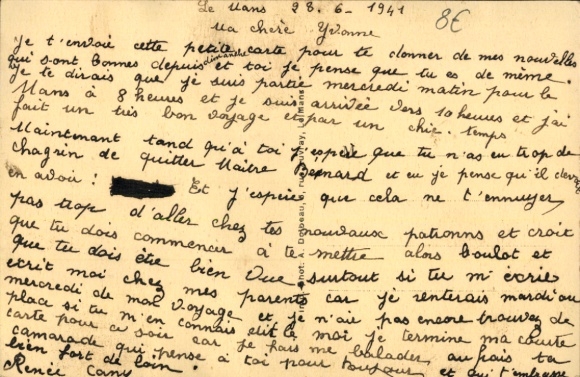 Le Mans 28.6-1941
8€
Ma chère Yvonne
Je t'envoie cette petite carte pour te donner de mes nouvelles
qui sont bonnes depuis dimanche et toi je pense que tu es de même.
Je te dirais que je suis partie mercredi matin pour le
Mans à 8 heures et je suis arrivée vers 10 heures et j'ai
fait un très bon voyage et par un chic temps
Maintenant tand qu'à toi j'espère que tu n'as eu trop de
chagrin de quitter Maitre Bénard et eu je pense qu'il
en avoir! Et j'espère que cela ne t'ennuyer
pas trop d'aller chez tes nouvaux patrons et croit
que tu dois commencer à te mettre alors boulot et
que tu dois être bien vue surtout si tu m'écrie
écrit moi chez mes parents car je rentirais mardi ou
mercredi de mon voyage et je n'ai pas encore trouvez de
place si tu m'en connais dit le moi je termine ma courte
carte pour ce soir car je vais me balader
camarade qui pense à toi pour toujour et qui t'embrasse
bien fort de loin.
Renée